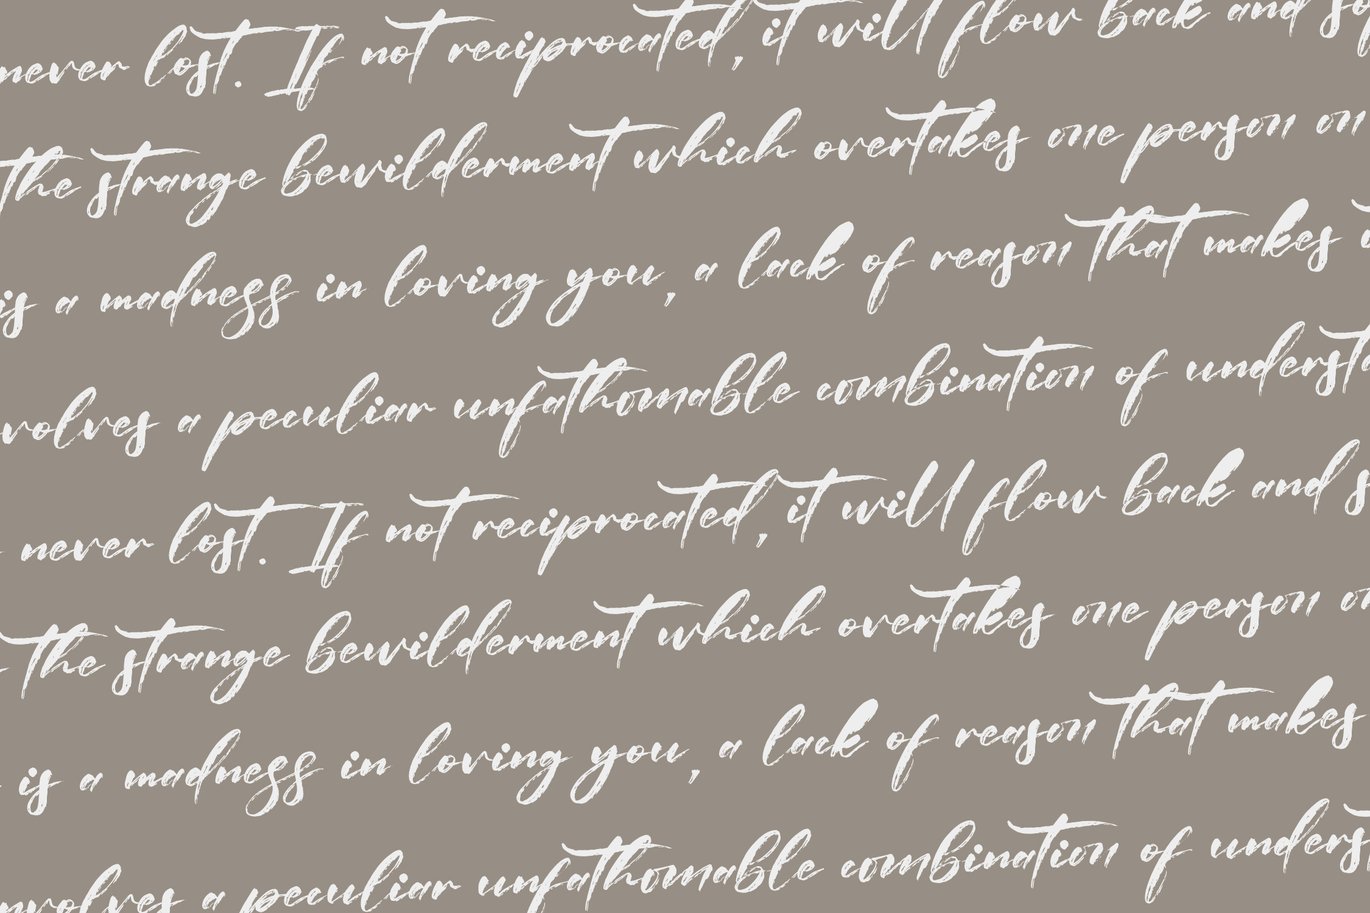 never lost. If not reciprocated, it will flow back and so
the strange bewilderment which overtakes one person on
is a madness in loving you, a lack of reason that makes
nvolves a peculiar unfathomable combination of understa
never lost. If not reciprocated, it will flow back and s
the strange bewilderment which overtakes one person on
is a madness in loving you, a lack of reason that makes
nvolves a peculiar unfathomable combination of underst